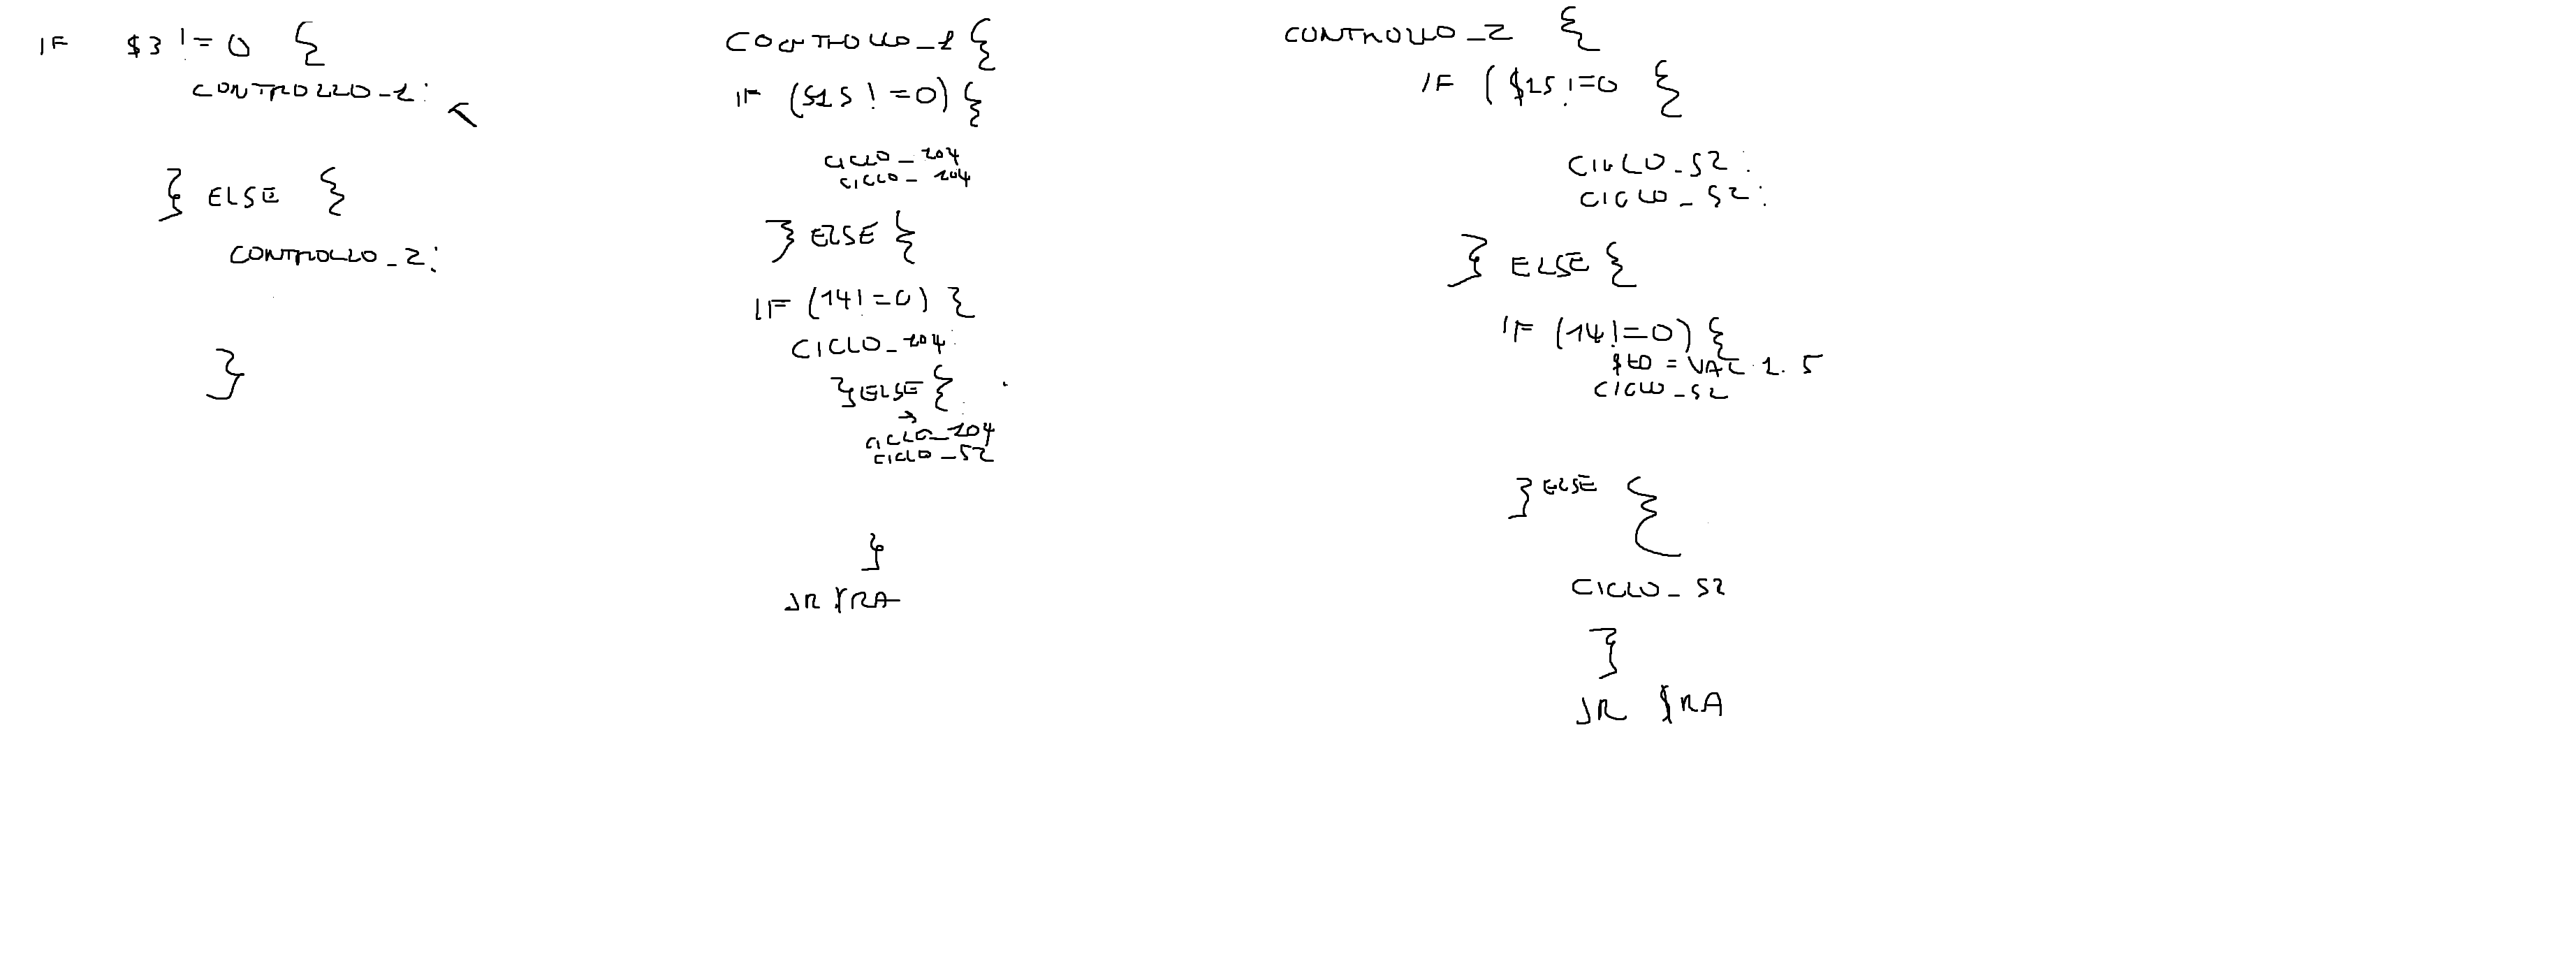 IF $3 != 0 {
CONTROLLO_1:
} ELSE {
CONTROLLO_2:
}
CONTROLLO_1 {
IF ($15 != 0) {
CICLO_104
CICLO_104
} ELSE {
IF (14 != 0) {
CICLO_104
} ELSE {
CICLO_104
CICLO_52
}
JR $RA
CONTROLLO_2 {
IF ($15 != 0 {
CICLO_52:
CICLO_52:
} ELSE {
IF (14 != 0) {
$t0 = VAL 1.5
CICLO_52
} ELSE {
CICLO_52
}
JR $RA